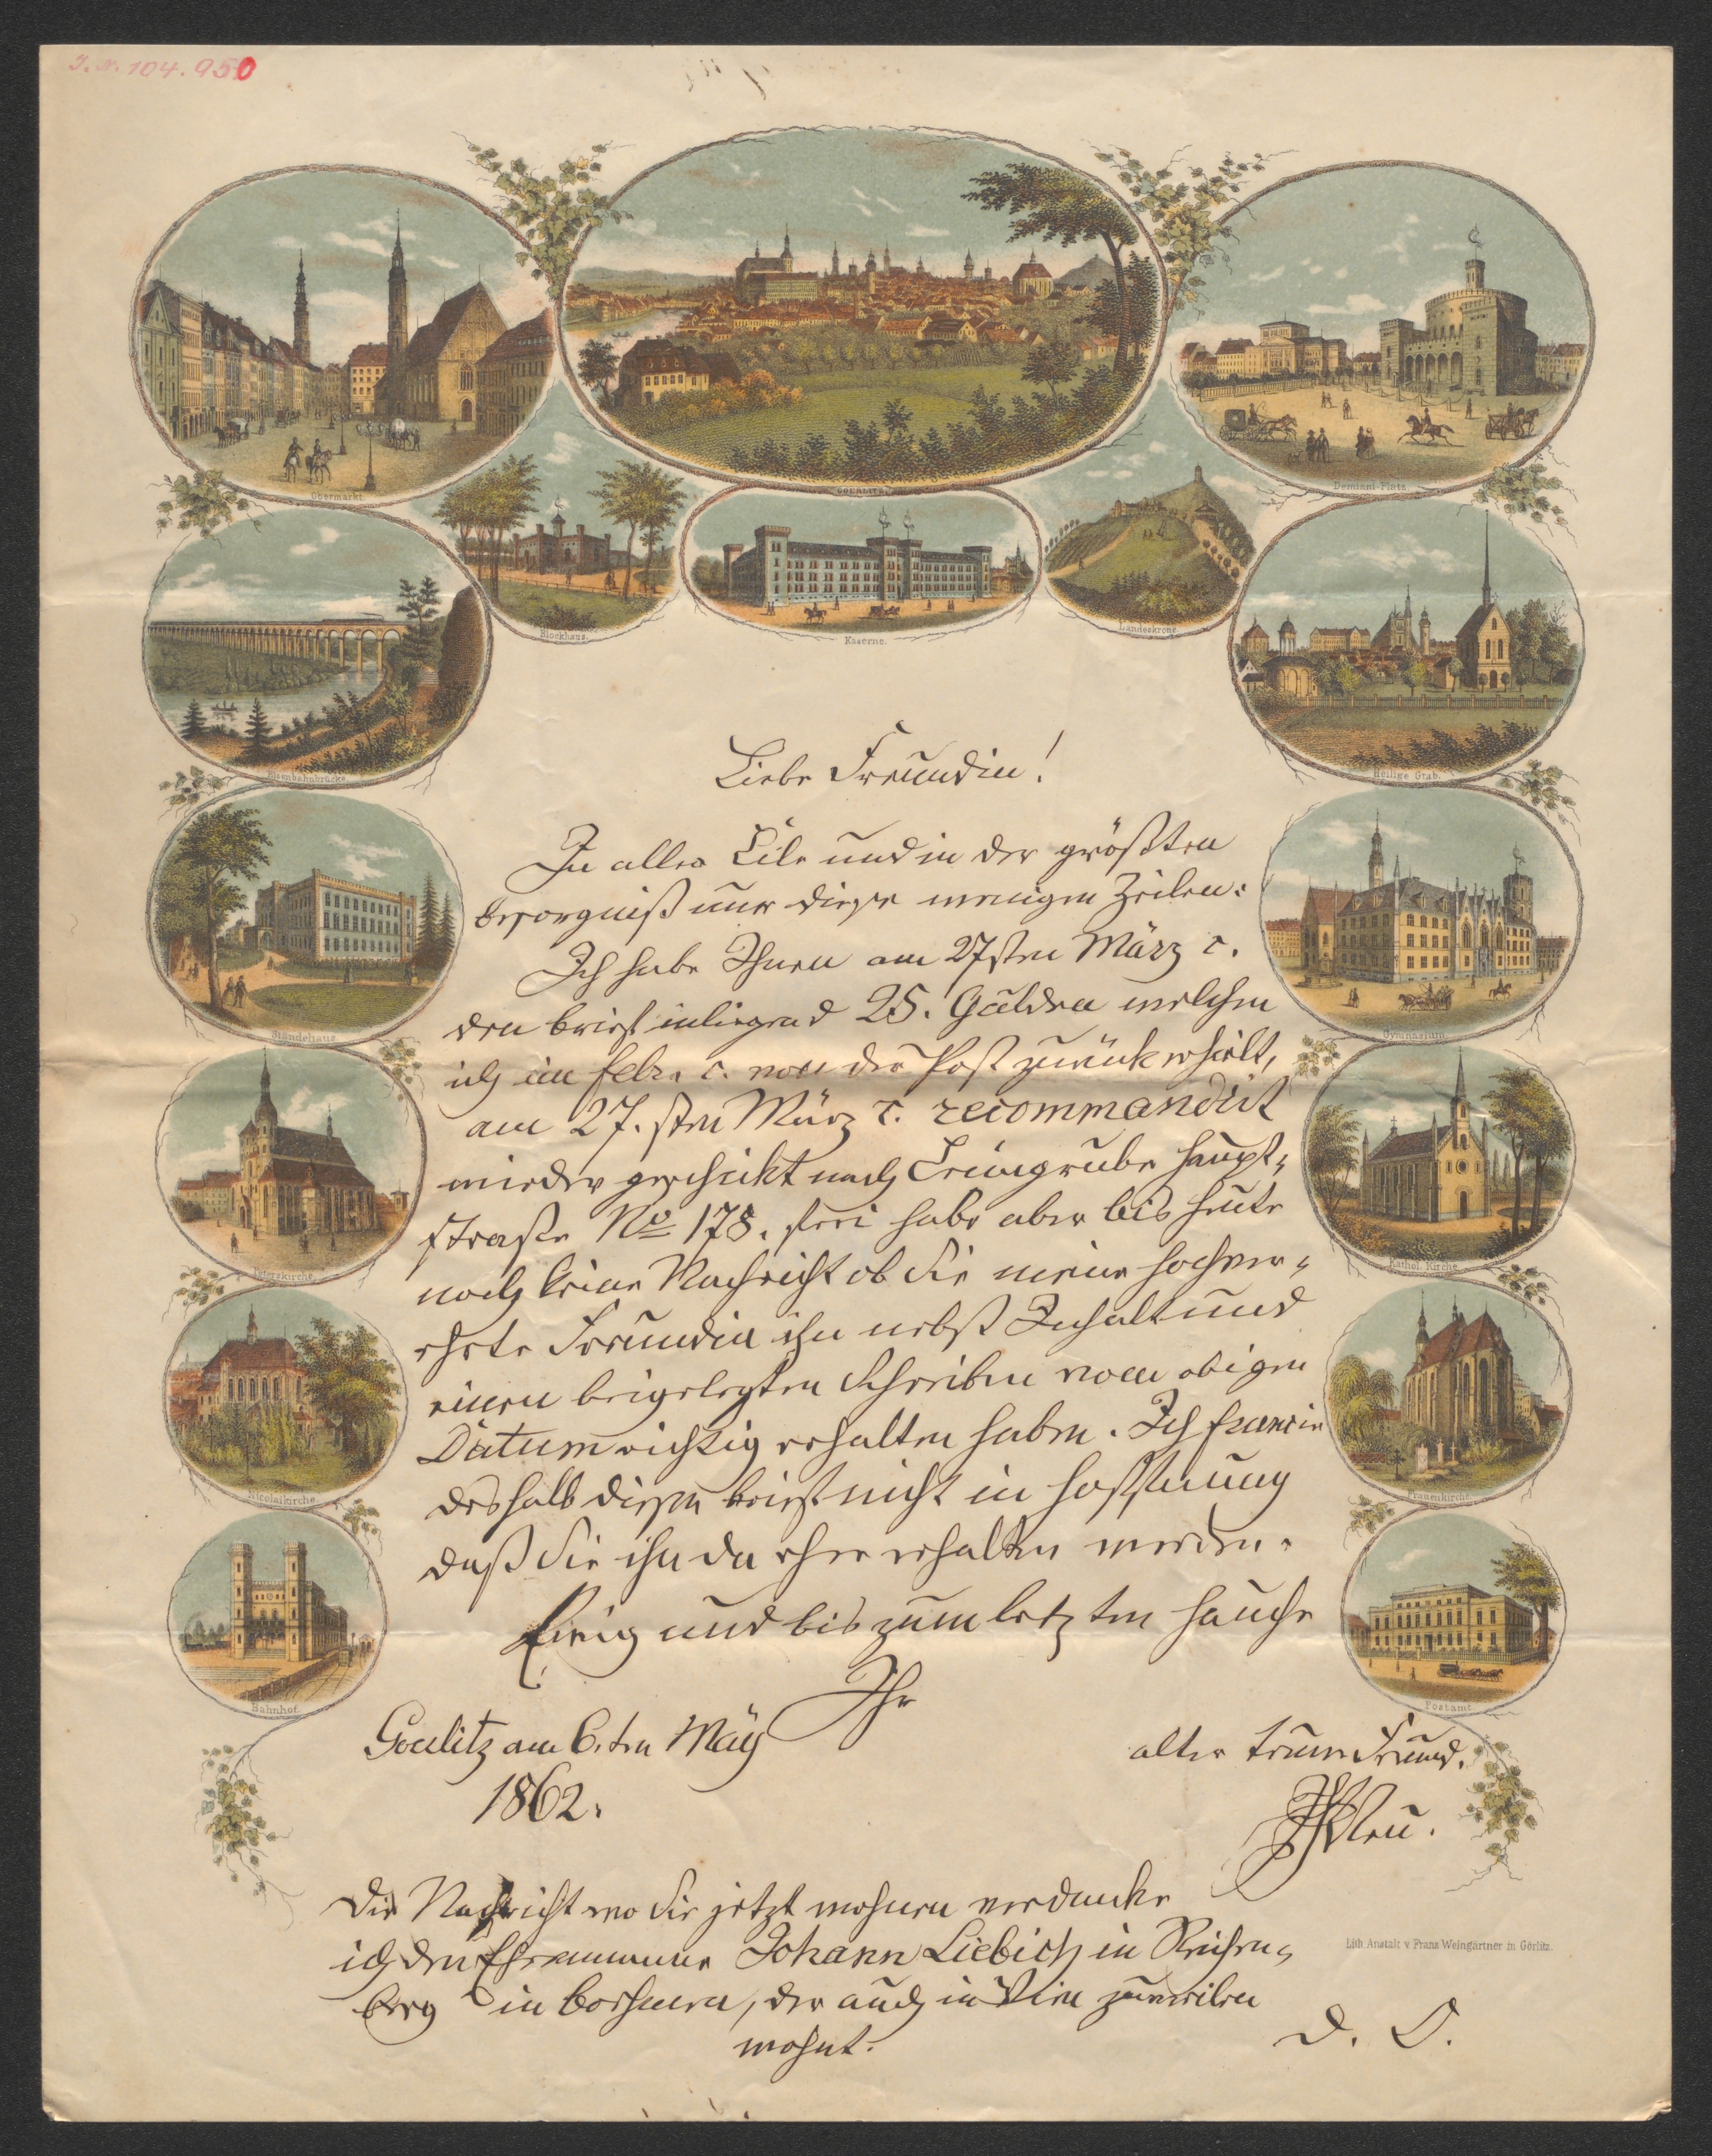 J. N. 104.950
Obermarkt.
GOERLITZ.
Demiani-Platz.
Blockhaus.
Kaserne.
Landeskrone.
Eisenbahnbrücke.
Heilige Grab.
Liebe Freundin!
In aller Eile und in der größten
besorgniß nur diese wenigen Zeilen:
Ich habe Ihnen am 27sten März c.
den brief inliegend 25. Gulden welchen
ich im febr. c. von der Post zurück erhielt,
am 27.sten März c. recommandirt
wieder geschickt nach Leimgrube haupt-
strasse No 178. habe aber bis heute
noch keine Nachricht ob Sie meine hochver-
ehrte Freundin ihn nebst Inhalt und
einen beigelegten Schreiben vom obigen
Datum richtig erhalten haben. Ich
deshalb diesen brief nicht in hoffnung
daß Sie ihn da eher erhalten werden.
Ewig und bis zum letzten hauche
Ihr
Goerlitz am 6.ten May
alter treuer Freund.
1862.
Neu.
Die Nachricht wo Sie jetzt wohnen verdanke
ich den Ehrenmanne Johann Liebich in Reichen-
berg in Boehmen, der auch in Wien zuweilen
wohnt.
D. O.
Ständehaus.
Gymnasium.
Peterskirche.
Kathol. Kirche.
Nicolaikirche.
Frauenkirche.
Bahnhof.
Postamt.
Lith. Anstalt v. Franz Weingärtner in Görlitz.